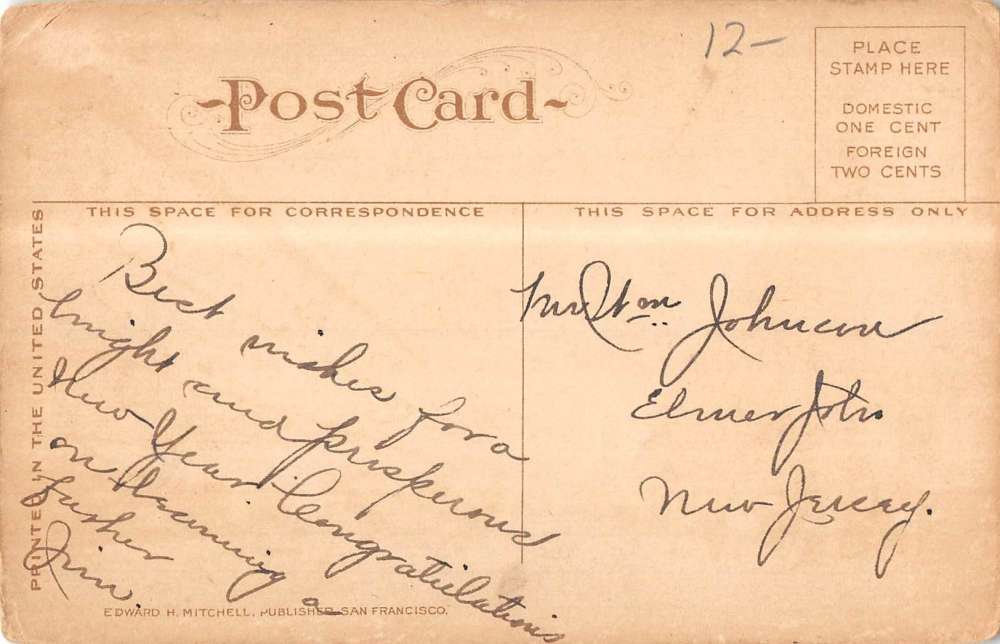 12-
Post Card
PLACE
STAMP HERE
DOMESTIC
ONE CENT
FOREIGN
TWO CENTS
THIS SPACE FOR CORRESPONDENCE
THIS SPACE FOR ADDRESS ONLY
PRINTED IN THE UNITED STATES
Best wishes for a
bright and prosperous
New Year. Congratulations
on becoming a
Jim
Mr. Wm Johnson
Elmer
New Jersey.
EDWARD H. MITCHELL, PUBLISHER SAN FRANCISCO.